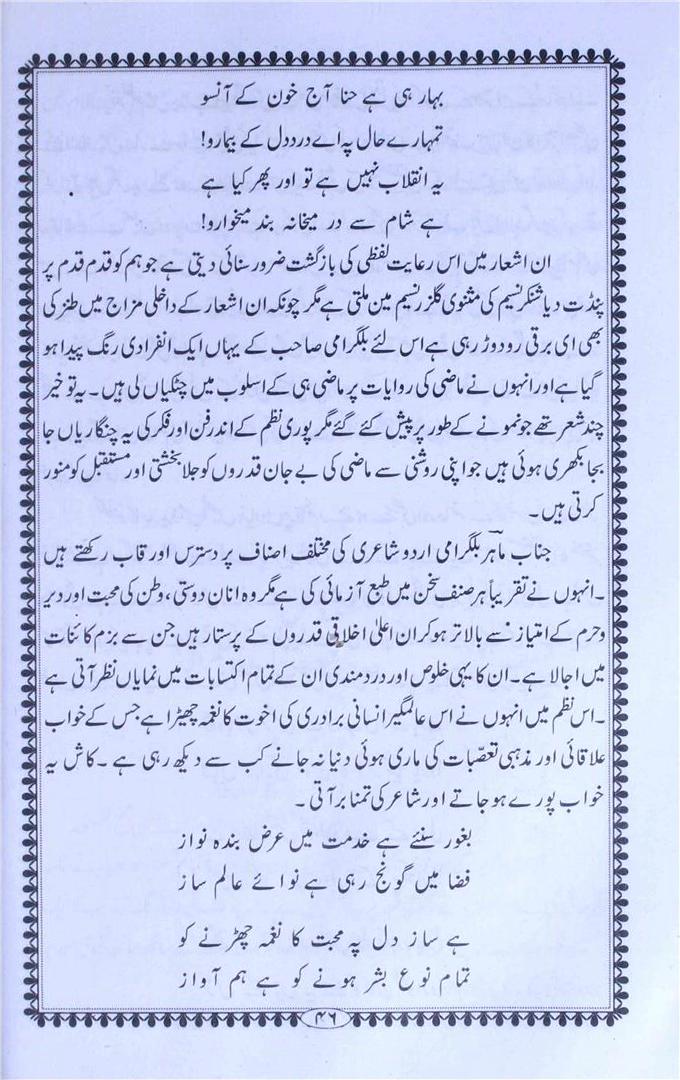 بہار ہی ہے حنا آج خون کے آنسو
تمہارے حال پہ اے درد دل کے بیمارو!
یہ انقلاب نہیں ہے تو اور پھر کیا ہے
ہے شام سے در میخانہ بند میخوارو!
ان اشعار میں اس رعایت لفظی کی بازگشت ضرور سنائی دیتی ہے جو ہم کو قدم قدم پر
پنڈت دیا شنکر نسیم کی مثنوی گلزر نسیم مین ملتی ہے مگر چونکہ ان اشعار کے داخلی مزاج میں طنز کی
بھی ای برقی رو دوڑ رہی ہے اس لئے بلگرامی صاحب کے یہاں ایک انفرادی رنگ پیدا ہو
گیا ہے اور انہوں نے ماضی کی روایات پر ماضی ہی کے اسلوب میں چٹکیاں لی ہیں۔ یہ تو خیر
چند شعر تھے جو نمونے کے طور پر پیش کئے گئے مگر پوری نظم کے اندر فن اور فکر کی یہ چنگاریاں جا
بجا بکھری ہوئی ہیں جو اپنی روشنی سے ماضی کی بے جان قدروں کو جلا بخشتی اور مستقبل کو منور
کرتی ہیں۔
جناب ماہؔر بلگرامی اردو شاعری کی مختلف اصناف پر دسترس اور قاب رکھتے ہیں
۔انہوں نے تقریباً ہر صنف سخن میں طبع آزمائی کی ہے مگر وہ انان دوستی، وطن کی محبت اور دیر
وحرم کے امتیاز سے بالاتر ہو کر ان اعلیٰ اخلاقی قدروں کے پرستار ہیں جن سے بزم کائنات
میں اجالا ہے۔ ان کا یہی خلوص اور دردمندی ان کے تمام اکتسابات میں نمایاں نظر آتی ہے
۔اس نظم میں انہوں نے اس عالمگیر انسانی برادری کی اخوت کا نغمہ چھیڑا ہے جس کے خواب
علاقائی اور مذہبی تعصّبات کی ماری ہوئی دنیا نہ جانے کب سے دیکھ رہی ہے ۔کاش یہ
خواب پورے ہو جاتے اور شاعر کی تمنا بر آتی ۔
بغور سنئے ہے خدمت میں عرض بندہ نواز
فضا میں گونج رہی ہے نوائے عالم ساز
ہے ساز دل پہ محبت کا نغمہ چھڑنے کو
تمام نوع بشر ہونے کو ہے ہم آواز
۴۶